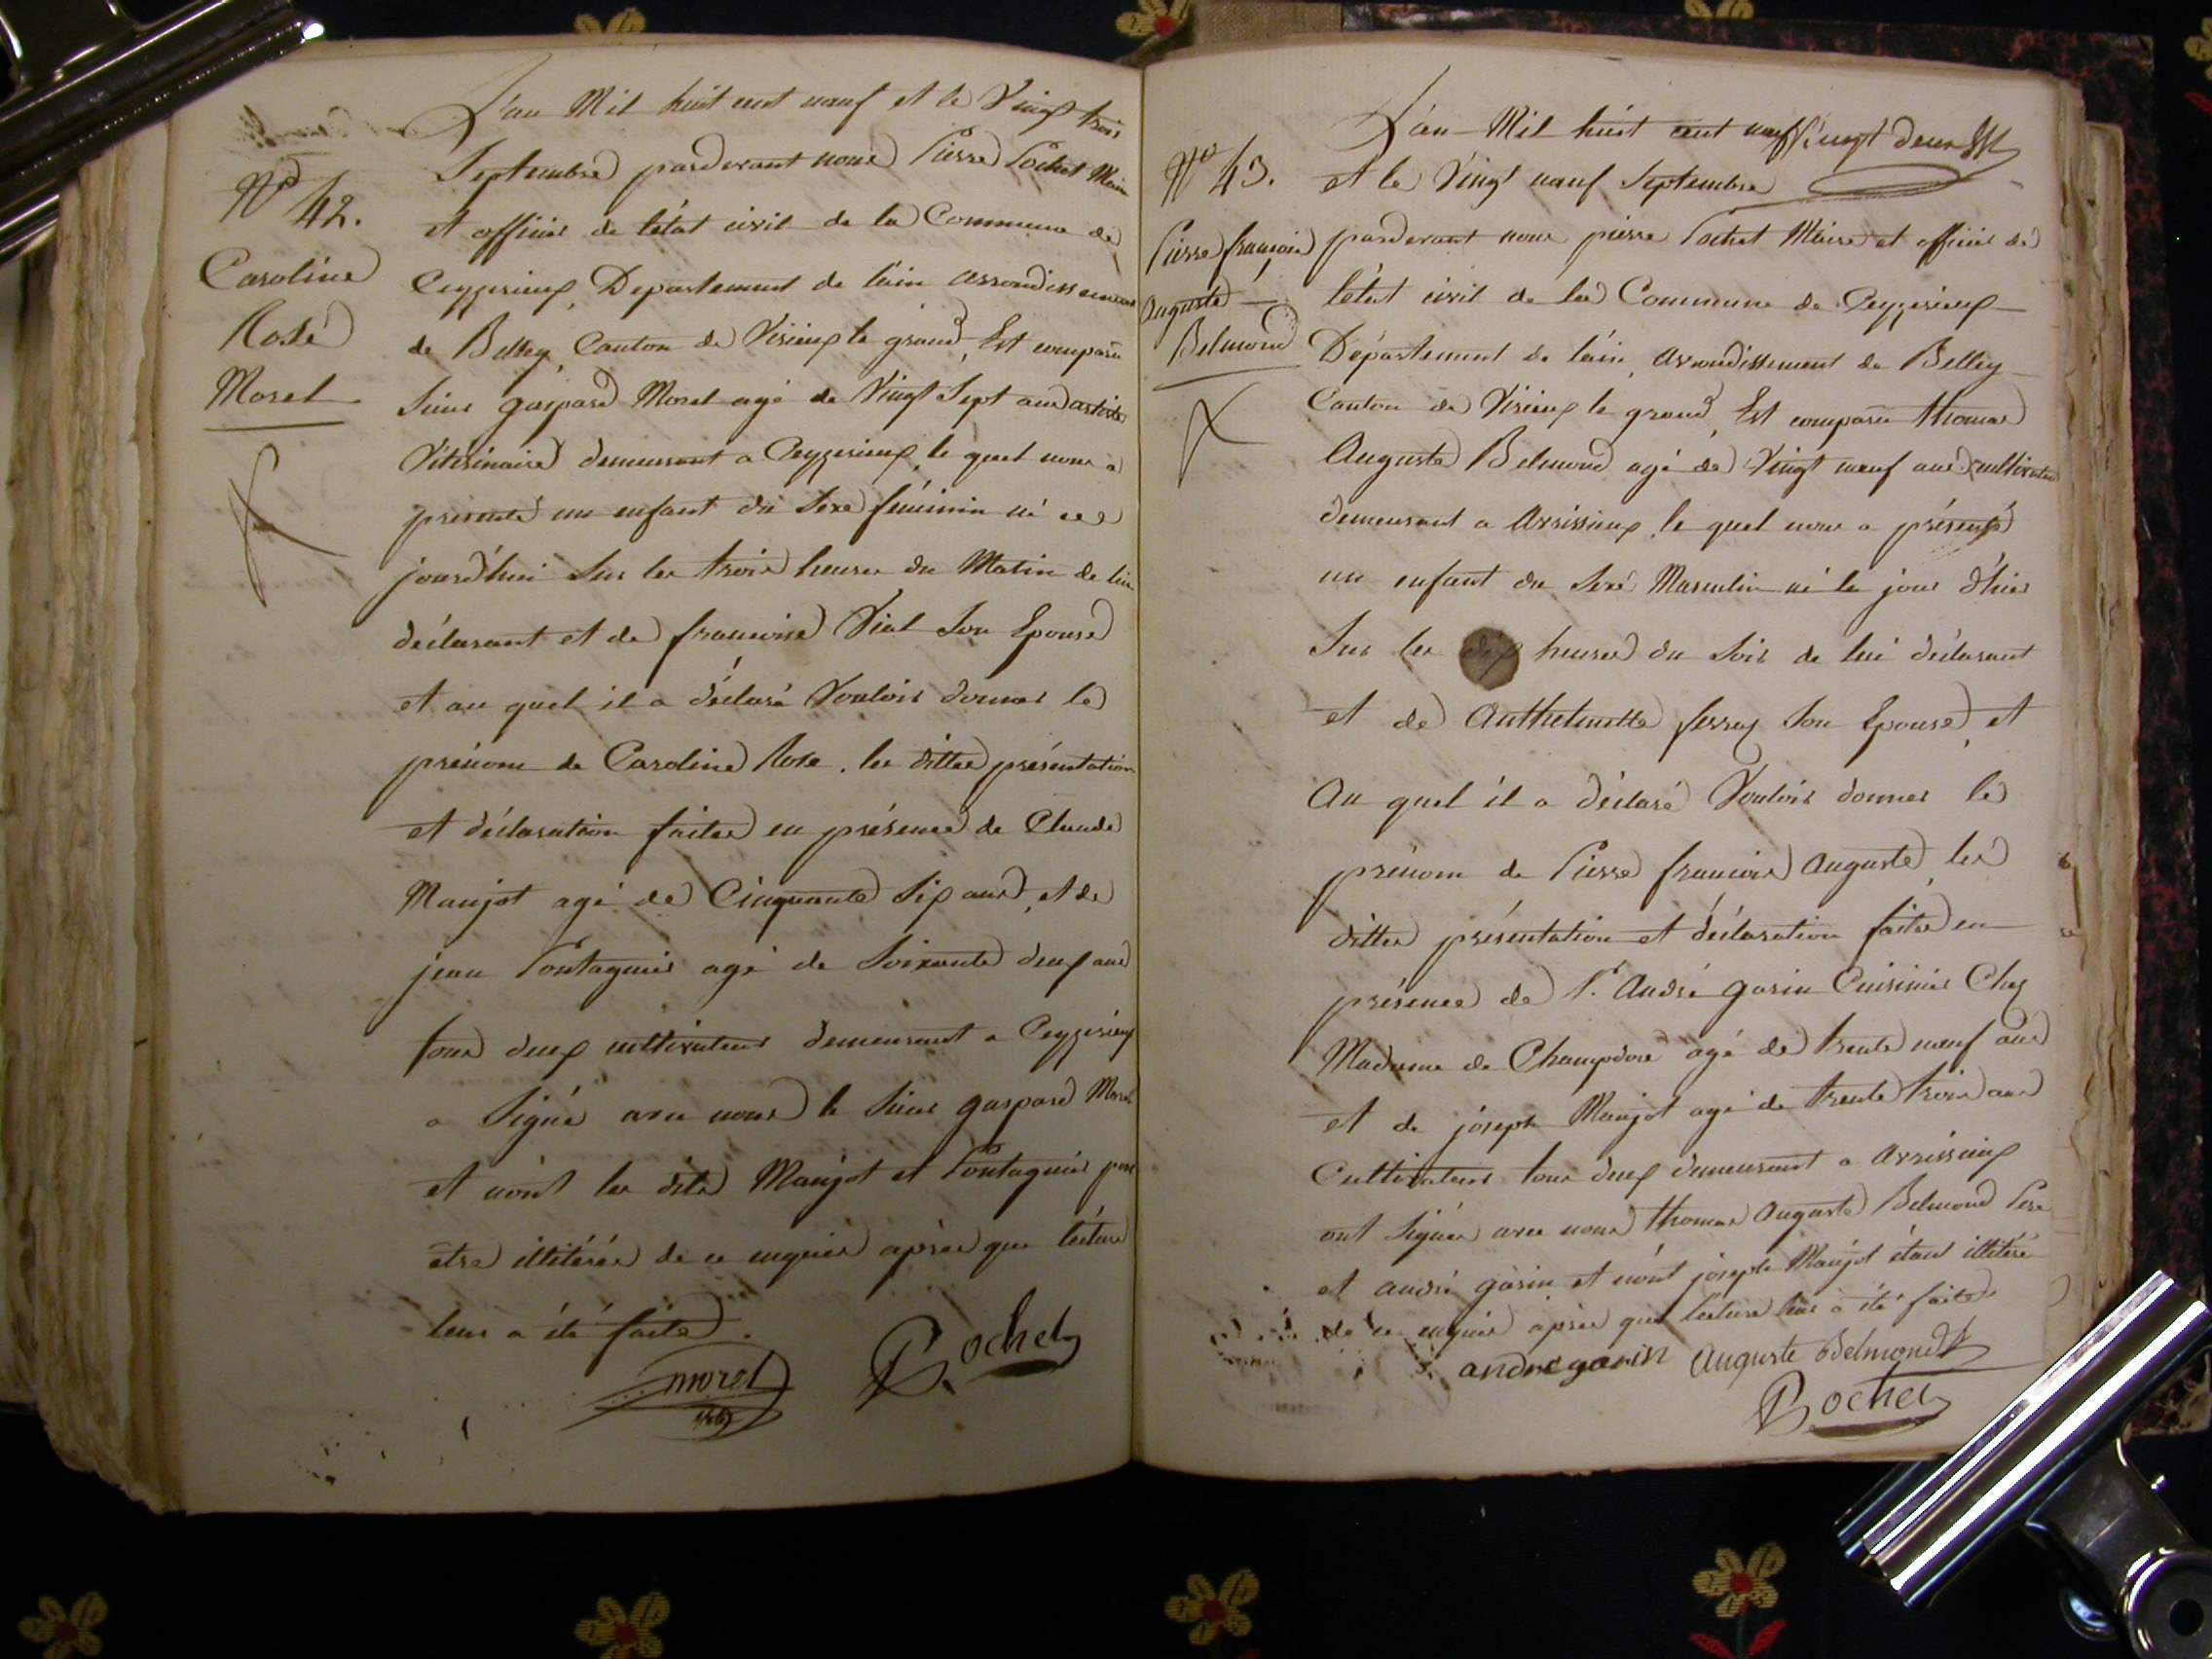 L'an Mil huit cent neuf et le Vingt trois
Septembre pardevant nous Pierre Pochet Maire
et officier de l'état civil de la Commune de
Ceyzerieux, Departement de l'ain arrondissement
de Belley, Canton de Virieux le grand, Est comparu
Sieur gaspard Morel agé de Vingt Sept ans artiste
Vétérinaire demeurant a Ceyzerieux, le quel nous a
présenté un enfant du Sexe féminin né ce
jourd'hui Sur les trois heures du Matin de lui
déclarant et de francoise Vial Son Epouse
et au quel il a déclaré Vouloir donner le
prénom de Caroline Rose, les dittes présentation
et déclaration faites en présence de Claude
Manjot agé de Cinquante Six ans, et de
jean Pontagnier agé de Soixante deux ans
tous deux cultivateurs demeurant a Ceyzerieux
a Signé avec nous le Sieur gaspard Morel
et n'ont les dits Manjot et Pontagnier pour
etre illitérés de ce enquis après que lecture
leur a été faite.
morel
Pochet
N° 42.
Caroline
Rose
Morel
L'an Mil huit cent neuf Vingt deux
et le Vingt neuf Septembre
pardevant nous pierre Pochet Maire et officier de
l'état civil de la Commune de Ceyzerieux
Département de l'ain, arrondissement de Belley
Canton de Virieux le grand, Est comparu thomas
Auguste Belmond agé de Vingt neuf ans cultivateur
demeurant a Avrissieux, le quel nous a présenté
un enfant du Sexe Masculin né le jour d'hier
Sur les dix heures du Soir de lui déclarant
et de Anthelmette ferraz Son Epouse, et
Au quel il a déclaré Vouloir donner le
prénom de Pierre francois Auguste, les
dittes présentation et déclaration faites en
présence de S. André garin Cuisinier Chez
Madame de Champdore agé de trente neuf ans
et de joseph Manjot agé de trente trois ans
Cultivateur tous deux demeurant a Avrissieux
ont Signés avec nous thomas Auguste Belmond Pere
et andré garin, et n'ont joseph Manjot étant illitéré
de ce enquis après que lecture leur a été faite.
andre garin Auguste Belmond
Pochet
N° 43.
Pierre francois
Auguste
Belmond